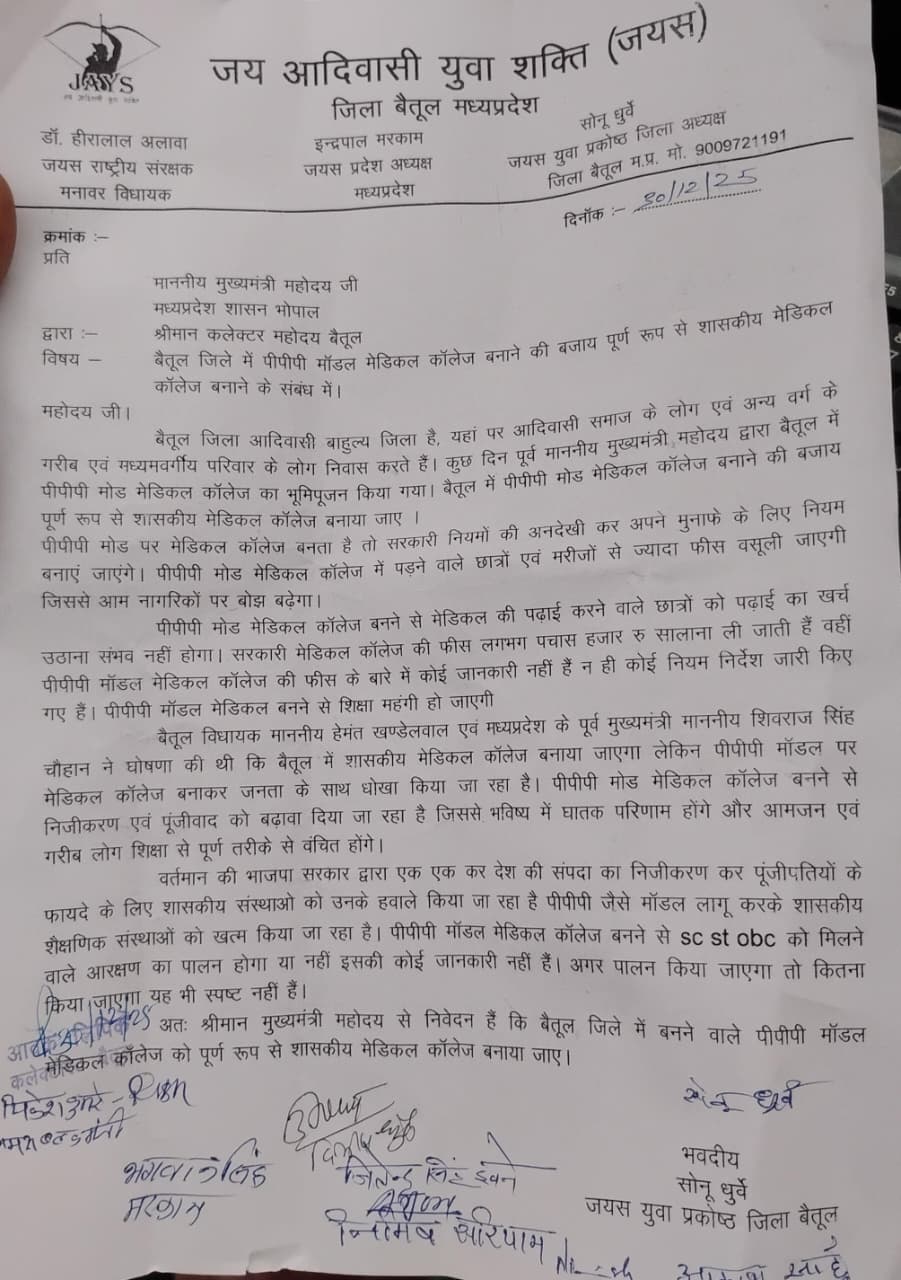 JAYS
जय आदिवासी युवा शक्ति (जयस)
जिला बैतूल मध्यप्रदेश
डॉ. हीरालाल अलावा
जयस राष्ट्रीय संरक्षक
मनावर विधायक
इन्द्रपाल मरकाम
जयस प्रदेश अध्यक्ष
मध्यप्रदेश
सोनू धुर्वे
जयस युवा प्रकोष्ठ जिला अध्यक्ष
जिला बैतूल म.प्र. मो. 9009721191
दिनॉक :- 30/12/25
क्रमांक :-
प्रति
माननीय मुख्यमंत्री महोदय जी
मध्यप्रदेश शासन भोपाल
द्वारा :- श्रीमान कलेक्टर महोदय बैतूल
विषय – बैतूल जिले में पीपीपी मॉडल मेडिकल कॉलेज बनाने की बजाय पूर्ण रूप से शासकीय मेडिकल
कॉलेज बनाने के संबंध में।
महोदय जी।
बैतूल जिला आदिवासी बाहुल्य जिला है, यहां पर आदिवासी समाज के लोग एवं अन्य वर्ग के
गरीब एवं मध्यमवर्गीय परिवार के लोग निवास करते हैं। कुछ दिन पूर्व माननीय मुख्यमंत्री महोदय द्वारा बैतूल में
पीपीपी मोड मेडिकल कॉलेज का भूमिपूजन किया गया। बैतूल में पीपीपी मोड मेडिकल कॉलेज बनाने की बजाय
पूर्ण रूप से शासकीय मेडिकल कॉलेज बनाया जाए ।
पीपीपी मोड पर मेडिकल कॉलेज बनता है तो सरकारी नियमों की अनदेखी कर अपने मुनाफे के लिए नियम
बनाएं जाएंगे। पीपीपी मोड मेडिकल कॉलेज में पड़ने वाले छात्रों एवं मरीजों से ज्यादा फीस वसूली जाएगी
जिससे आम नागरिकों पर बोझ बढ़ेगा।
पीपीपी मोड मेडिकल कॉलेज बनने से मेडिकल की पढ़ाई करने वाले छात्रों को पढ़ाई का खर्च
उठाना संभव नहीं होगा। सरकारी मेडिकल कॉलेज की फीस लगभग पचास हजार रु सालाना ली जाती हैं वहीं
पीपीपी मॉडल मेडिकल कॉलेज की फीस के बारे में कोई जानकारी नहीं हैं न ही कोई नियम निर्देश जारी किए
गए हैं। पीपीपी मॉडल मेडिकल बनने से शिक्षा महंगी हो जाएगी
बैतूल विधायक माननीय हेमंत खण्डेलवाल एवं मध्यप्रदेश के पूर्व मुख्यमंत्री माननीय शिवराज सिंह
चौहान ने घोषणा की थी कि बैतूल में शासकीय मेडिकल कॉलेज बनाया जाएगा लेकिन पीपीपी मॉडल पर
मेडिकल कॉलेज बनाकर जनता के साथ धोखा किया जा रहा है। पीपीपी मोड मेडिकल कॉलेज बनने से
निजीकरण एवं पूंजीवाद को बढ़ावा दिया जा रहा है जिससे भविष्य में घातक परिणाम होंगे और आमजन एवं
गरीब लोग शिक्षा से पूर्ण तरीके से वंचित होंगे।
वर्तमान की भाजपा सरकार द्वारा एक एक कर देश की संपदा का निजीकरण कर पूंजीपतियों के
फायदे के लिए शासकीय संस्थाओ को उनके हवाले किया जा रहा है पीपीपी जैसे मॉडल लागू करके शासकीय
शैक्षणिक संस्थाओं को खत्म किया जा रहा है। पीपीपी मॉडल मेडिकल कॉलेज बनने से sc st obc को मिलने
वाले आरक्षण का पालन होगा या नहीं इसकी कोई जानकारी नहीं हैं। अगर पालन किया जाएगा तो कितना
किया जाएगा यह भी स्पष्ट नहीं हैं।
अतः श्रीमान मुख्यमंत्री महोदय से निवेदन हैं कि बैतूल जिले में बनने वाले पीपीपी मॉडल
मेडिकल कॉलेज को पूर्ण रूप से शासकीय मेडिकल कॉलेज बनाया जाए।
सोनू धुर्वे
भगवान सिंह
मरकाम
जितेन्द्र सिंह इवने
भवदीय
सोनू धुर्वे
जयस युवा प्रकोष्ठ जिला बैतूल